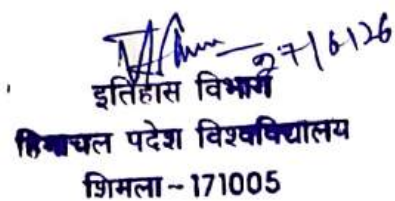 27/6/26
इतिहास विभाग
हिमाचल पदेश विश्वविद्यालय
शिमला - 171005